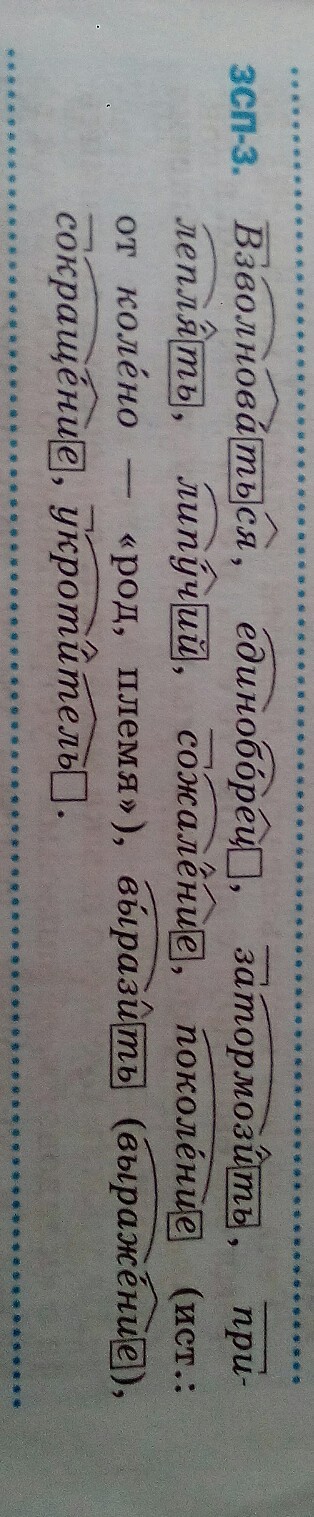 ЗСП-3. Взволнова́ться, единобо́рец, затормози́ть, при-
лепля́ть, липу́чий, сожале́ние, поколе́ние (ист.:
от коле́но — «род, племя»), вы́разить (выраже́ние),
сокраще́ние, укроти́тель.